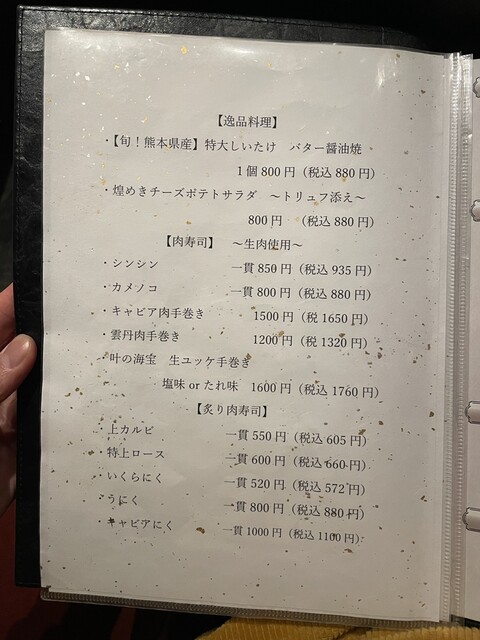 【逸品料理】
・【旬！熊本県産】特大しいたけ　バター醤油焼
1個 800円（税込 880円）
・煌めきチーズポテトサラダ　～トリュフ添え～
800円　（税込 880円）
【肉寿司】　～生肉使用～
・シンシン　一貫 850円（税込 935円）
・カメノコ　一貫 800円（税込 880円）
・キャビア肉手巻き　1500円（税 1650円）
・雲丹肉手巻き　1200円（税 1320円）
・叶の海宝　生ユッケ手巻き
塩味 or たれ味　1600円（税込 1760円）
【炙り肉寿司】
・上カルビ　一貫 550円（税込 605円）
・特上ロース　一貫 600円（税込 660円）
・いくらにく　一貫 520円（税込 572円）
・うにく　一貫 800円（税込 880円）
・キャビアにく　一貫 1000円（税込 1100円）